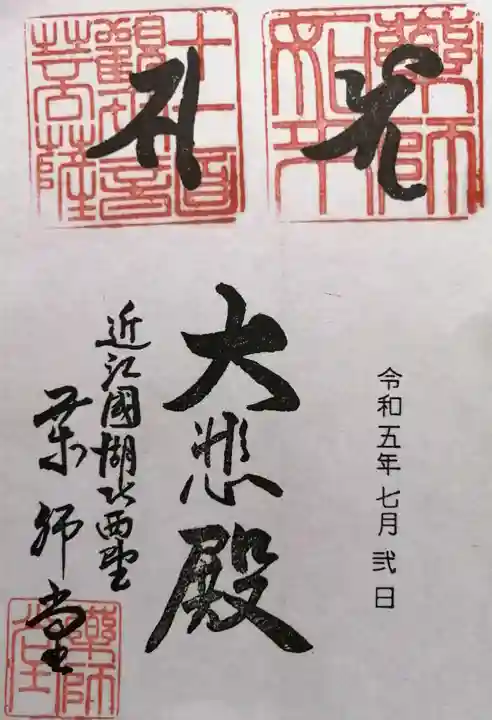 藥師
如来
十一面
觀世音
菩薩
令和五年七月弐日
大悲殿
近江國湖北西野
薬師堂
藥師
堂